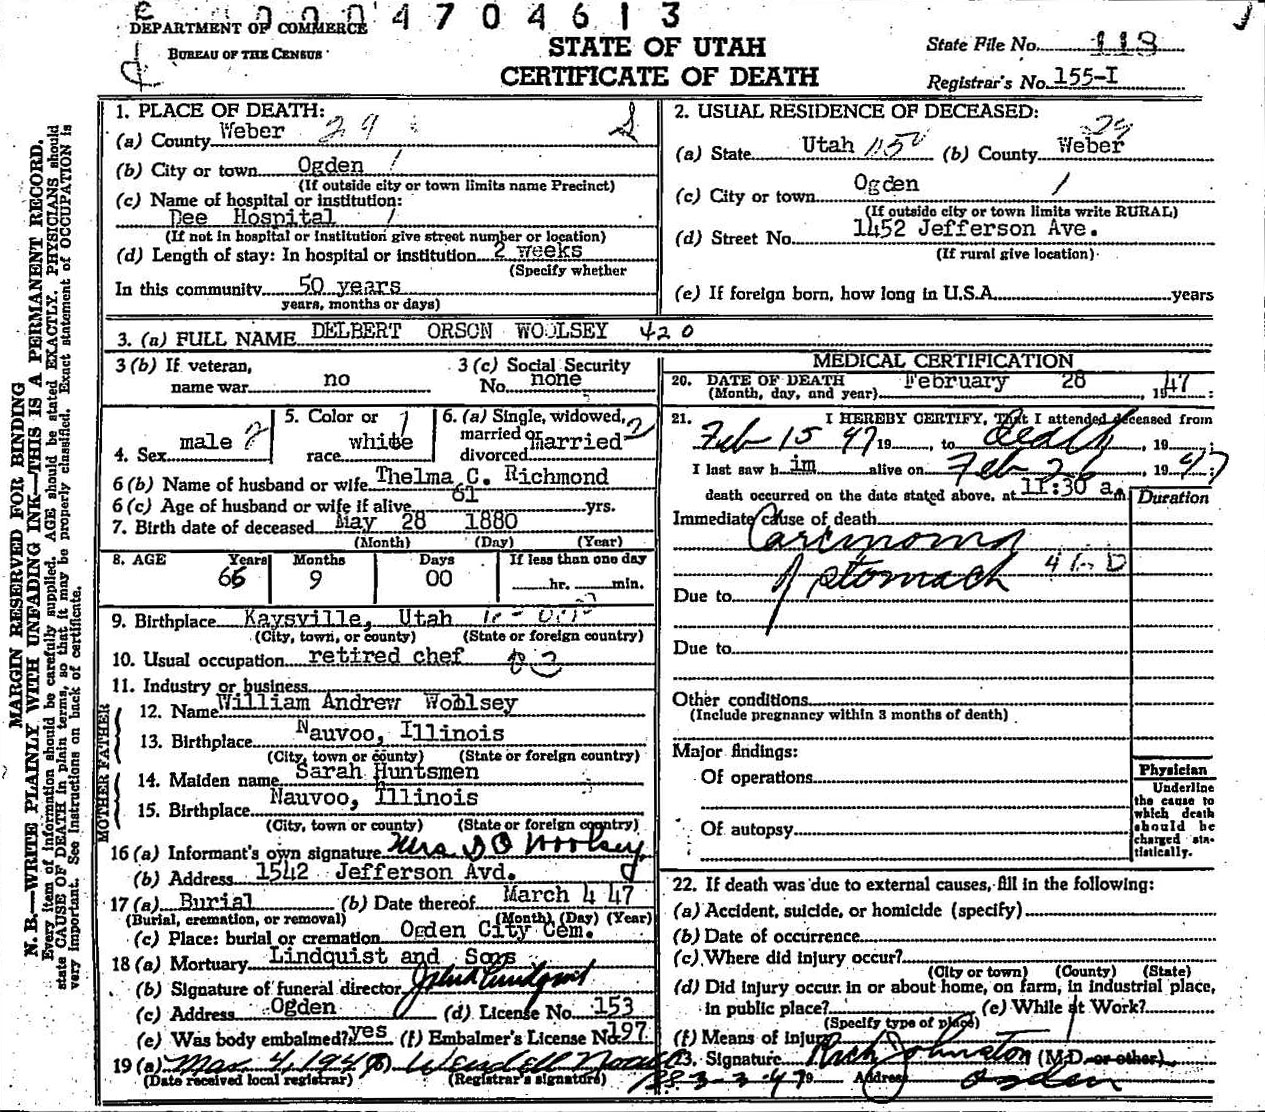 0004704613
DEPARTMENT OF COMMERCE
BUREAU OF THE CENSUS
STATE OF UTAH
CERTIFICATE OF DEATH
State File No. 118
Registrar's No. 155-I
MARGIN RESERVED FOR BINDING
N. B.—WRITE PLAINLY WITH UNFADING INK—THIS IS A PERMANENT RECORD.
Every item of information should be carefully supplied. AGE should be stated EXACTLY. PHYSICIANS should
state CAUSE OF DEATH in plain terms, so that it may be properly classified. Exact statement of OCCUPATION is
very important. See instructions on back of certificate.
1. PLACE OF DEATH:
(a) County Weber 29
(b) City or town Ogden 1
(If outside city or town limits name Precinct)
(c) Name of hospital or institution:
Dee Hospital 1
(If not in hospital or institution give street number or location)
(d) Length of stay: In hospital or institution 2 weeks
(Specify whether
In this community 50 years
years, months or days)
2. USUAL RESIDENCE OF DECEASED:
29
(a) State Utah 1150 (b) County Weber
(c) City or town Ogden 1
(If outside city or town limits write RURAL)
(d) Street No. 1452 Jefferson Ave.
(If rural give location)
(e) If foreign born, how long in U.S.A. years
3. (a) FULL NAME DELBERT ORSON WOOLSEY 420
3 (b) If veteran,
name war no
3 (c) Social Security
No. none
4. Sex male 2
5. Color or 1
race white
6. (a) Single, widowed,
married or
divorced Married 2
6 (b) Name of husband or wife Thelma C. Richmond
6 (c) Age of husband or wife if alive 61 yrs.
7. Birth date of deceased May 28 1880
(Month) (Day) (Year)
8. AGE Years Months Days If less than one day
66 9 00 hr. min.
9. Birthplace Kaysville, Utah
(City, town, or county) (State or foreign country)
10. Usual occupation retired chef
11. Industry or business
FATHER
12. Name William Andrew Woolsey
13. Birthplace Nauvoo, Illinois
(City, town or county) (State or foreign country)
MOTHER
14. Maiden name Sarah Huntsmen
15. Birthplace Nauvoo, Illinois
(City, town or county) (State or foreign country)
16 (a) Informant's own signature Mrs D O Woolsey
(b) Address 1542 Jefferson Avd.
17 (a) Burial (b) Date thereof March 4 47
(Burial, cremation, or removal) (Month) (Day) (Year)
(c) Place: burial or cremation Ogden City Cem.
18 (a) Mortuary Lindquist and Sons
(b) Signature of funeral director John Lindquist
(c) Address Ogden (d) License No. 153
(e) Was body embalmed? yes (f) Embalmer's License No. 197
19 (a) Mar. 4, 1947 (b) Wendell
(Date received local registrar) (Registrar's signature)
MEDICAL CERTIFICATION
20. DATE OF DEATH February 28 , 1947
(Month, day, and year)
21. I HEREBY CERTIFY, That I attended deceased from
Feb 15 47 19 to death , 19 ;
I last saw h im alive on Feb 26 , 1947;
death occurred on the date stated above, at 11:30 a.m
Duration
Immediate cause of death
Carcinoma
of stomach 46 D
Due to
Due to
Other conditions
(Include pregnancy within 3 months of death)
Major findings:
Of operations
Of autopsy
Physician
Underline
the cause to
which death
should be
charged sta-
tistically.
22. If death was due to external causes, fill in the following:
(a) Accident, suicide, or homicide (specify)
(b) Date of occurrence
(c) Where did injury occur?
(City or town) (County) (State)
(d) Did injury occur in or about home, on farm, in industrial place,
in public place? (e) While at Work?
(Specify type of place)
(f) Means of injury
23. Signature Rich Johnston (M.D. or other)
3-3-47 19 Address Ogden